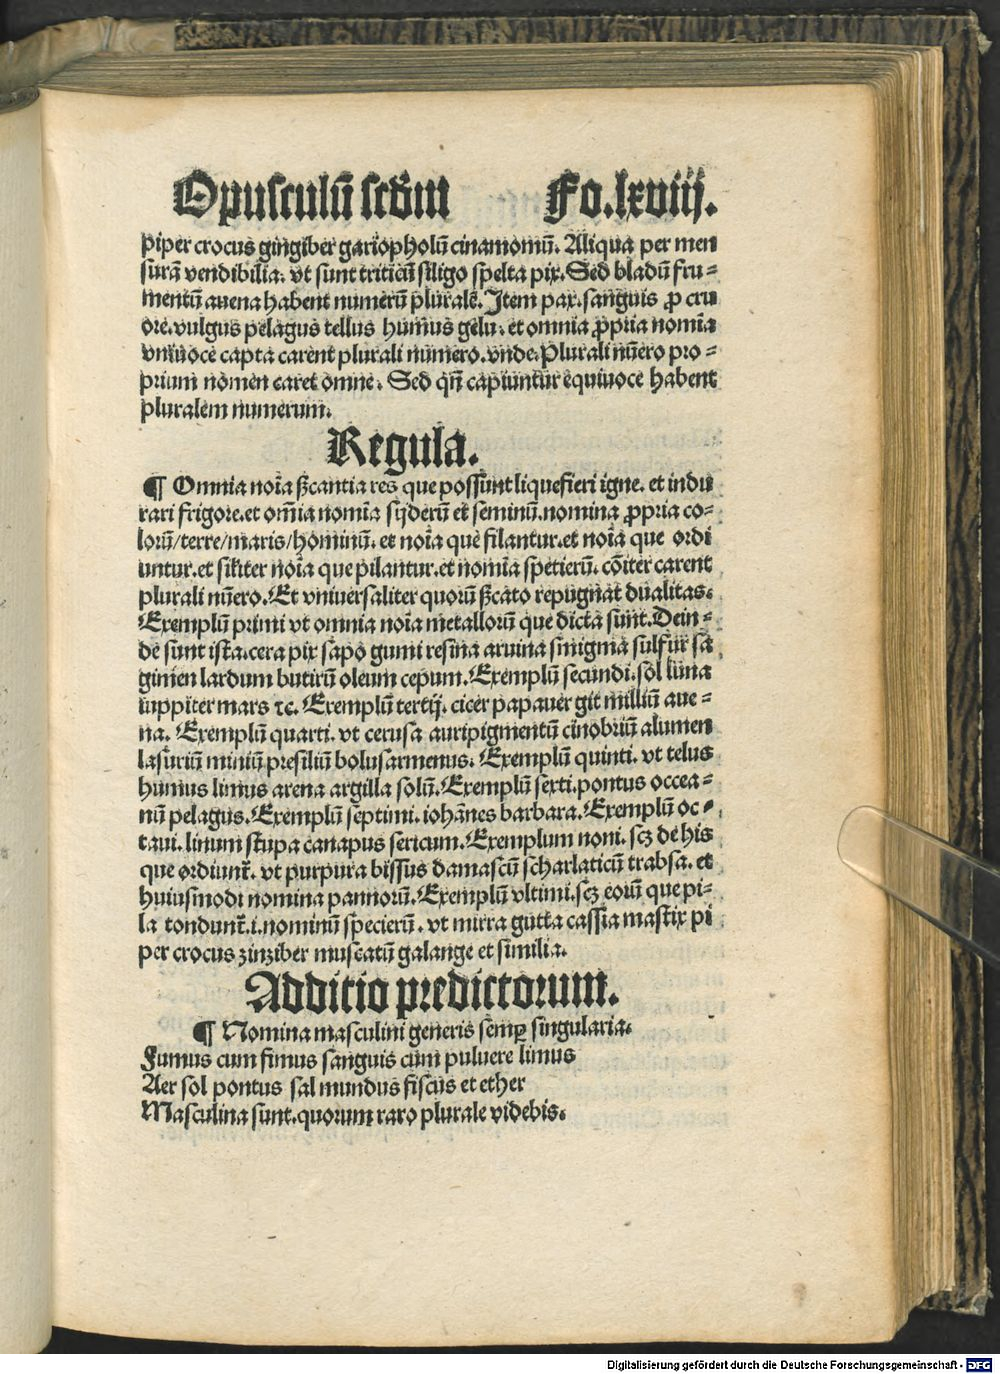 Opusculū scd̄m Fo.lxviij.
piper crocus gingiber gariopholū cinamomū. Aliqua per men
surā vendibilia. vt sunt triticū siligo spelta pix. Sed bladū fru-
mentū auena habent numerū pluralē. Item pax. sanguis ꝓ cru
ore. vulgus pelagus tellus humus gelu. et omnia ꝓpria nomīa
vniuoce capta carent plurali numero. vnde. Plurali nūero pro-
prium nomen caret omne. Sed qn̄ capiuntur equiuoce habent
pluralem numerum.
Regula.
¶ Omnia noīa ſꝫcantia res que possunt liquefieri igne. et indu
rari frigore. et om̄ia nomīa syderū et seminū. nomina ꝓpria co-
lorū/terre/maris/hominū. et noīa que filantur. et noīa que ordi
untur. et sil̄iter noīa que pilantur. et nomīa spetierū. cōiter carent
plurali nūero. Et vniuersaliter quorū ſꝫcato repugnat dualitas.
Exemplū primi vt omnia noīa metallorū que dicta sunt. Dein-
de sunt ista. cera pix sapo gumi resina aruina smigma sulfur sa
gimen lardum butirū oleum cepum. Exemplū secundi. sol luna
iuppiter mars ⁊c. Exemplū tertij. cicer papauer git milliū aue-
na. Exemplū quarti. vt cerusa auripigmentū cinobriū alumen
lasuriū miniū presiliū bolusarmenus. Exemplū quinti. vt telus
humus limus arena argilla solū. Exemplū sexti. pontus occea-
nū pelagus. Exemplū septimi. iohānes barbara. Exemplū oc-
taui. linum stupa canapus sericum. Exemplum noni. scꝫ de his
que ordiunt̄. vt purpura bissus damascū scharlaticū trabsa. et
huiusmodi nomina pannorū. Exemplū vltimi. scꝫ eorū que pi-
la tondunt̄. i. nominū specierū. vt mirra gutta cassia mastix pi
per crocus zinziber muscatū galange et similia.
Additio predictorum.
¶ Nomina masculini generis semꝑ singularia.
Fumus cum fimus sanguis cum puluere limus
Aer sol pontus sal mundus fiscus et ether
Masculina sunt. quorum raro plurale videbis.
Digitalisierung gefördert durch die Deutsche Forschungsgemeinschaft - DFG